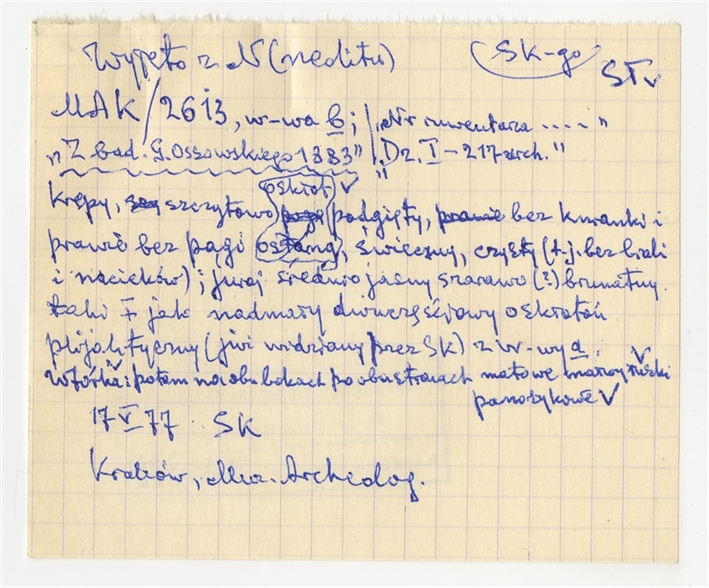 Wyjęto z N(neditu) SK-go STv
MAK/2613, w-wa b; /„Nr inwentarza ...."
„Z bad. G. Ossowskiego 1883" / „Dz. I - 217 arch."
oskrob v
Krępy, szczytowo podgięty, prawie bez kwanki i
prawie bez pągi ostańg, świeczny, czysty (t.j. bez brali
i nacieków); jwaj średnio jasny szarawo (?) brunatny
taki jak nadmały dwuczęściowy oskrobań
plijolityczny (już widziany przez SK) z w-wy a.
Wtórka: potem na obu bokach po obu stronach matowe
panożykowe v
17 V 77 SK
Kraków, Muz. Archeolog.